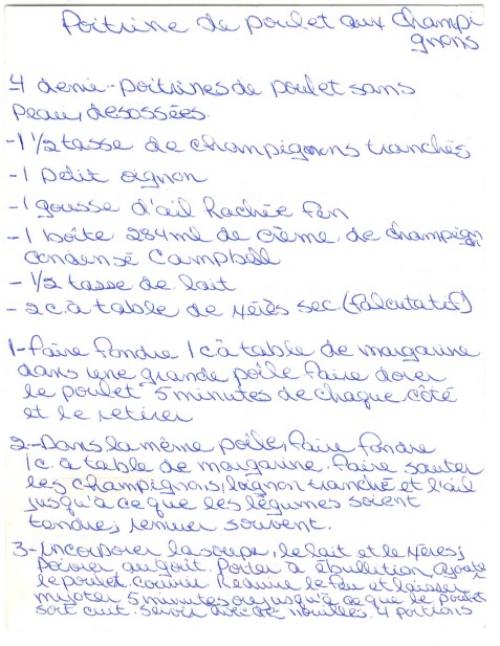 Poitrine de poulet aux champi
gnons
4 demie-poitrines de poulet sans
peau, desossées.
-1 1/2 tasse de champignons tranchés
-1 petit oignon
-1 gousse d'ail hachée fin
-1 boîte 284ml de crème de champign
condensé Campbell
- 1/2 tasse de lait
- 2 c. à table de xérès sec (falcutatif)
1- Faire fondre 1 c à table de margarine
dans une grande poêle. Faire dorer
le poulet 5 minutes de chaque côté
et le retirer
2- Dans la même poêle, faire fondre
1 c. à table de margarine. Faire sauter
les champignons, l'oignon tranché et l'ail
jusqu'à ce que les légumes soient
tendres, remuer souvent.
3- Incorporer la soupe, le lait et le xérès;
poivrer au goût. Porter à ébullition, ajouter
le poulet. Couvrir Réduire le feu et laisser
mijoter 5 minutes ou jusqu'à ce que le poulet
soit cuit. Servir avec nouilles. 4 portions